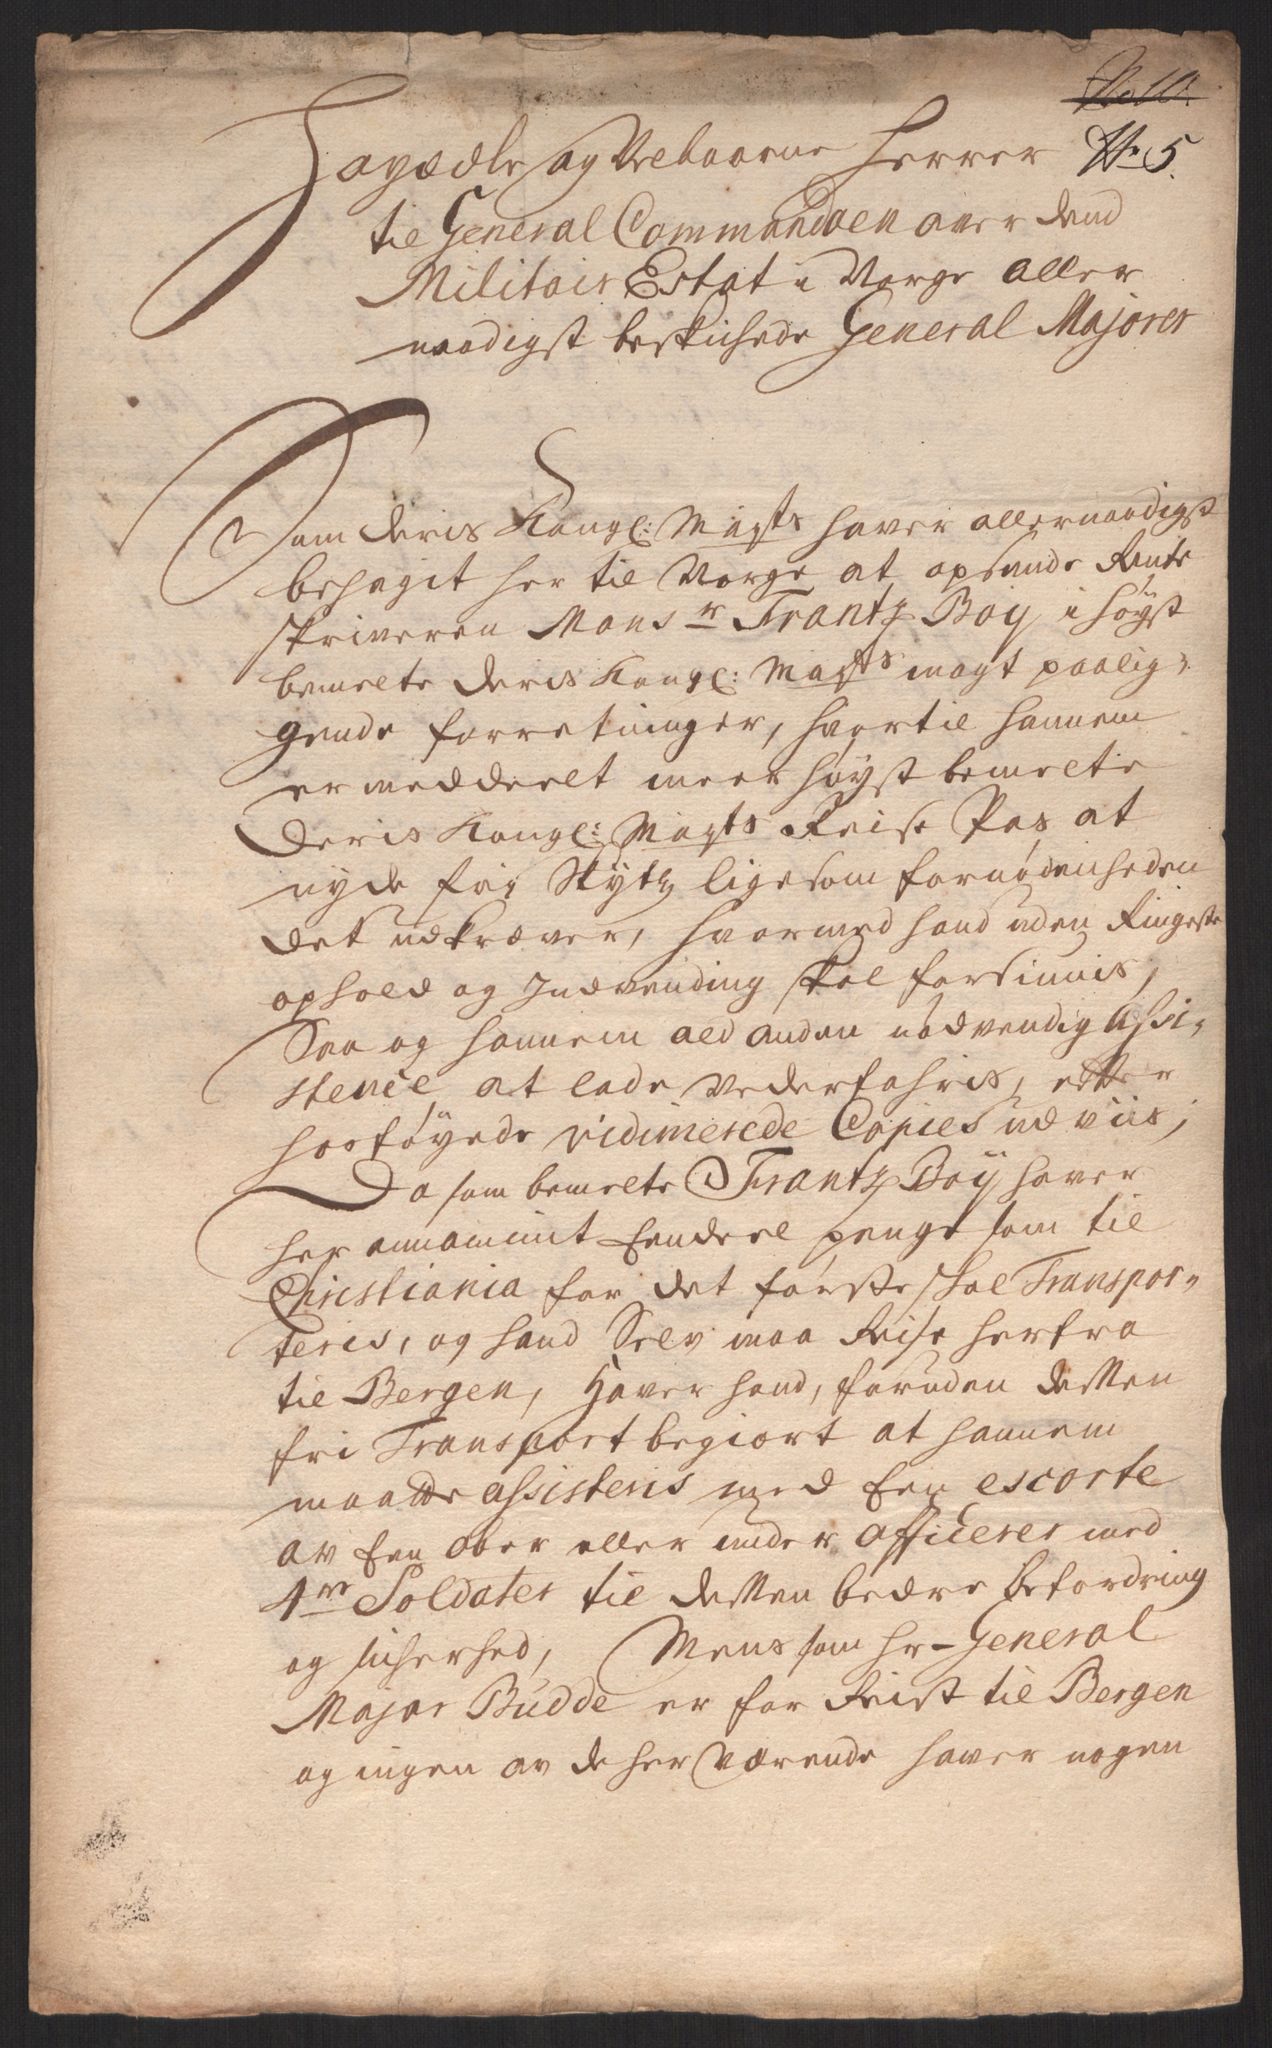 No 10.
Høyædle og Velbaarne Herrer No 5.
til General Commandoen over dend
Militair Estat i Norge aller
naadigst beskichede General Majorer
Som Deris Kongl: Mayts haver allernaadigst
behaget her til Norge at opsende Rente
skriveren Monsr Frantz Boij i høyst
bemelte Deris Kongl: Mayts magt paalig-
gende forretninger, hvortil hannem
er meddeelt meer høyst bemelte
Deris Kongl: Mayts Reise Pas at
nyde frij Skytz ligesom fornødenheden
det udkræver, hvormed hand uden Ringeste
ophold og Indvending skal forsiunis,
Saa og hannem ald anden nødvendig assi-
stence at lade Vederfahris, efter
hosføyede vidimerede Copies udviis,
Da som bemelte Frantz Boij haver
her annammit Eendeel penge som til
Christiania for det første skal Transpor-
teris, og hand Selv maa Reise herfra
til Bergen, Haver hand, foruden dessen
fri Transport begiært at hannem
maatte assisteris med Een escorte
av Een ober eller under officerer med
4re Soldater til dessen bedre befordring
og sicherhed, Mens som Hr General
Major Budde er for Reist til Bergen
og ingen av de her værende haver nogen